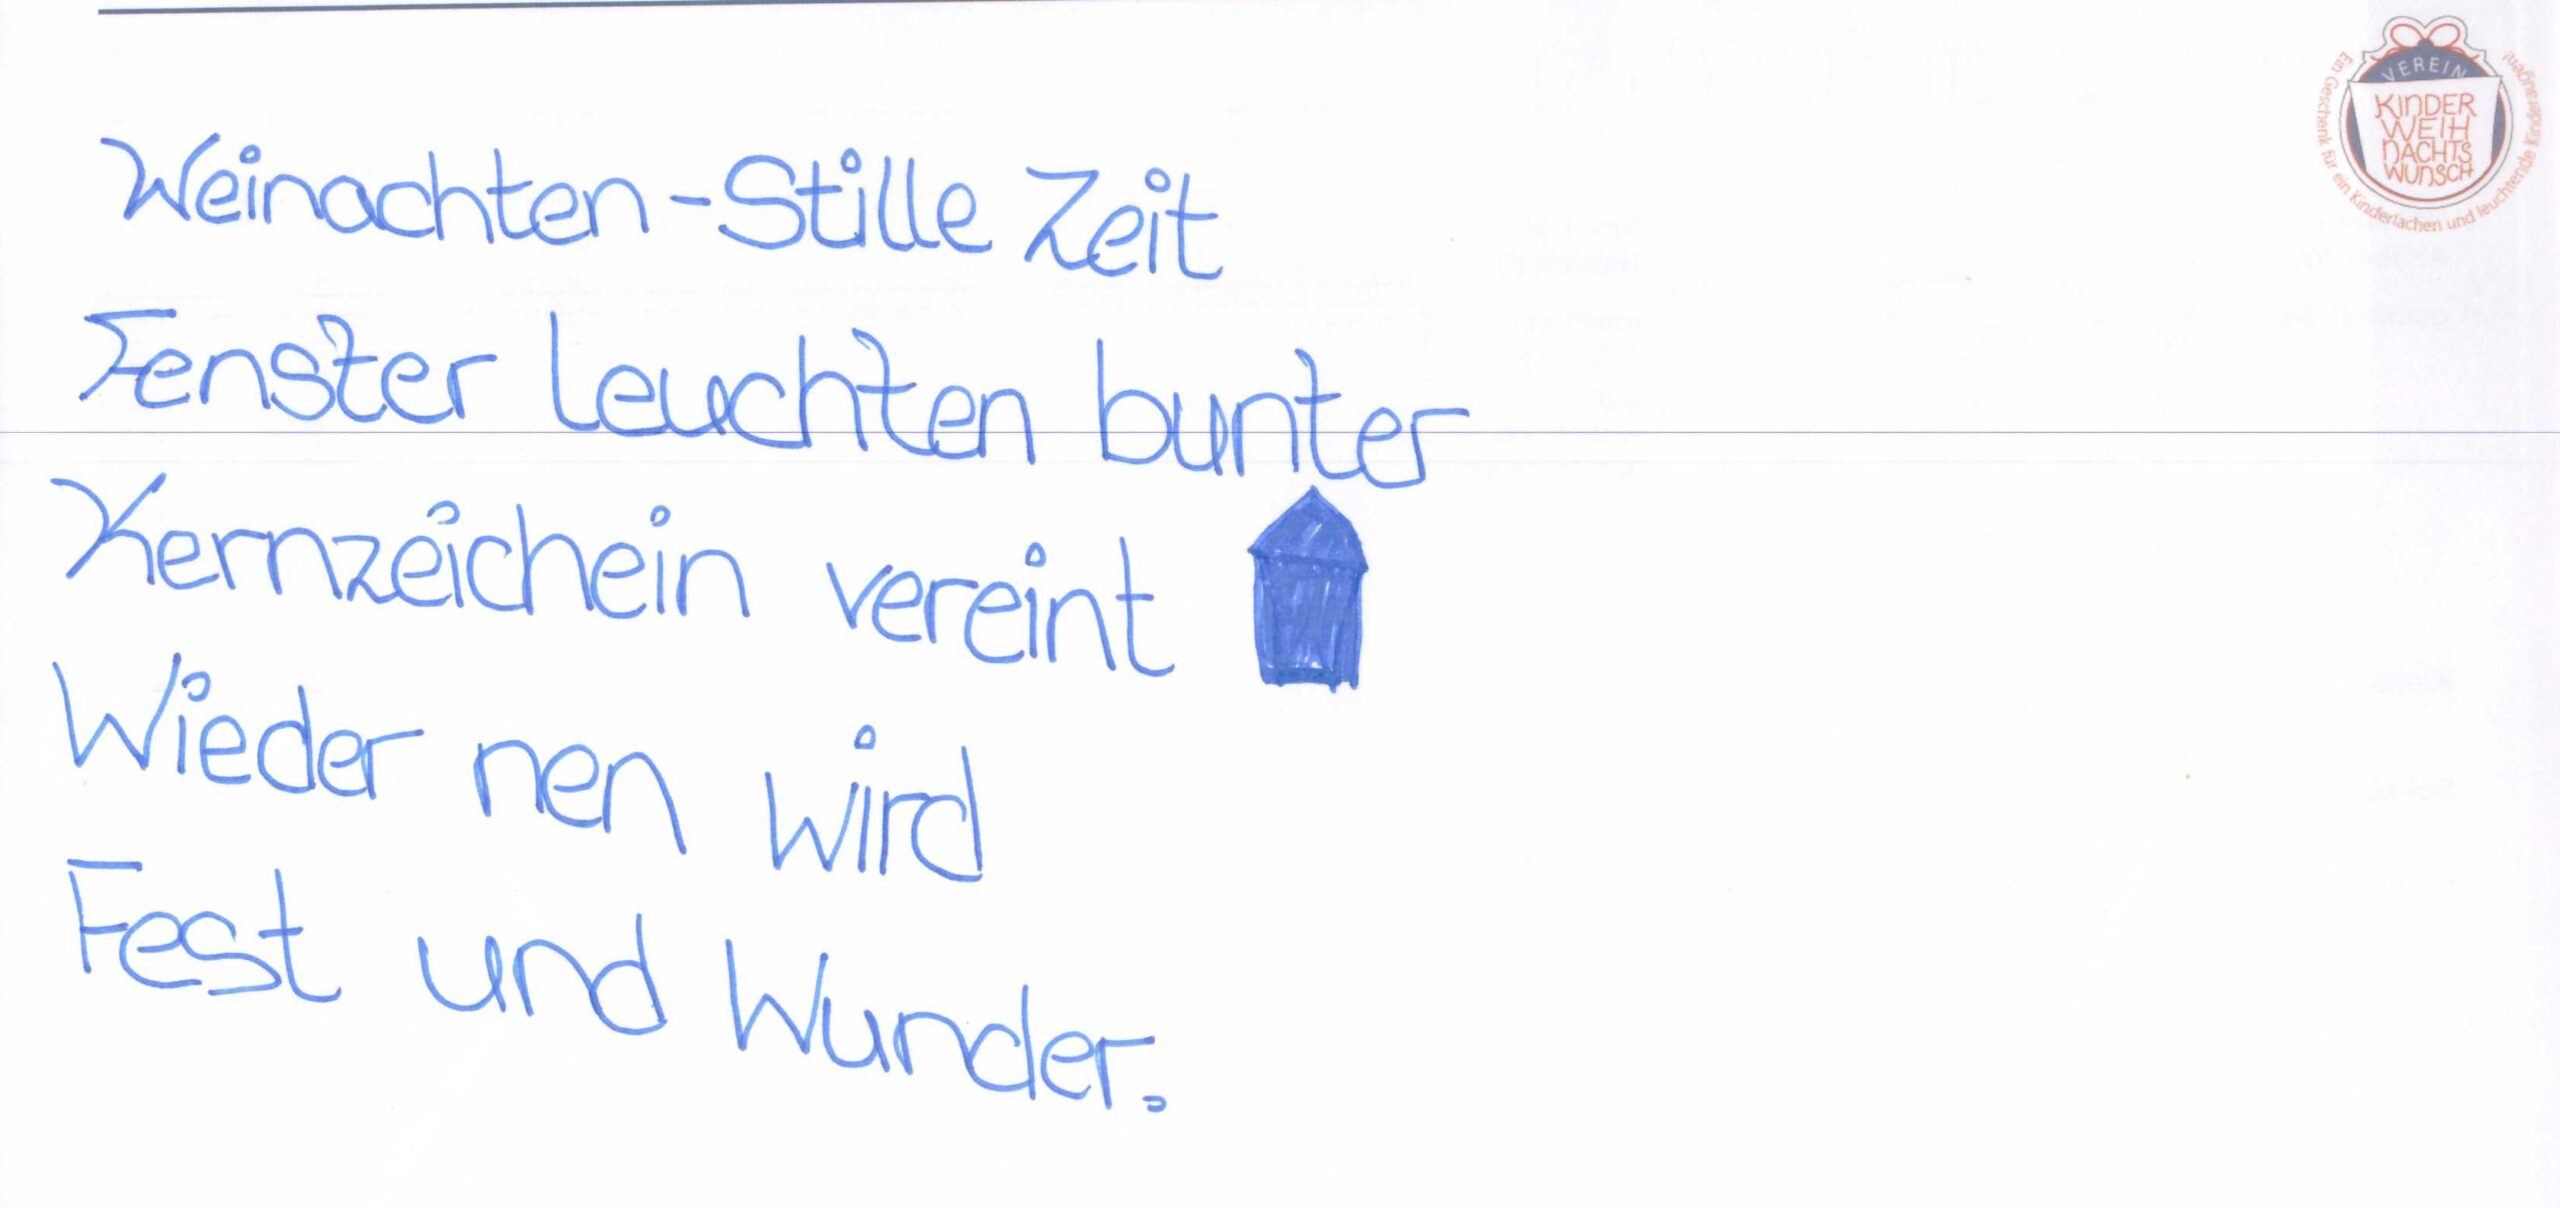 VEREIN
KINDER
WEIH
NACHTS
WUNSCH
Ein Geschenk für ein Kinderlachen und leuchtende Kinderaugen!
Weinachten - Stille Zeit
Fenster leuchten bunter
Kernzeichein vereint
Wieder nen wird
Fest und Wunder.